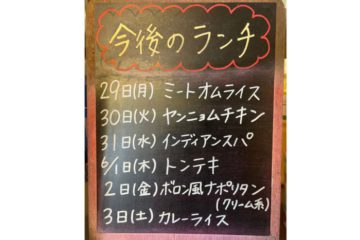 今後のランチ
29日(月) ミートオムライス
30日(火) ヤンニョムチキン
31日(水) インディアンスパ
6/1日(木) トンテキ
2日(金) ボロン風ナポリタン
(クリーム系)
3日(土) カレーライス